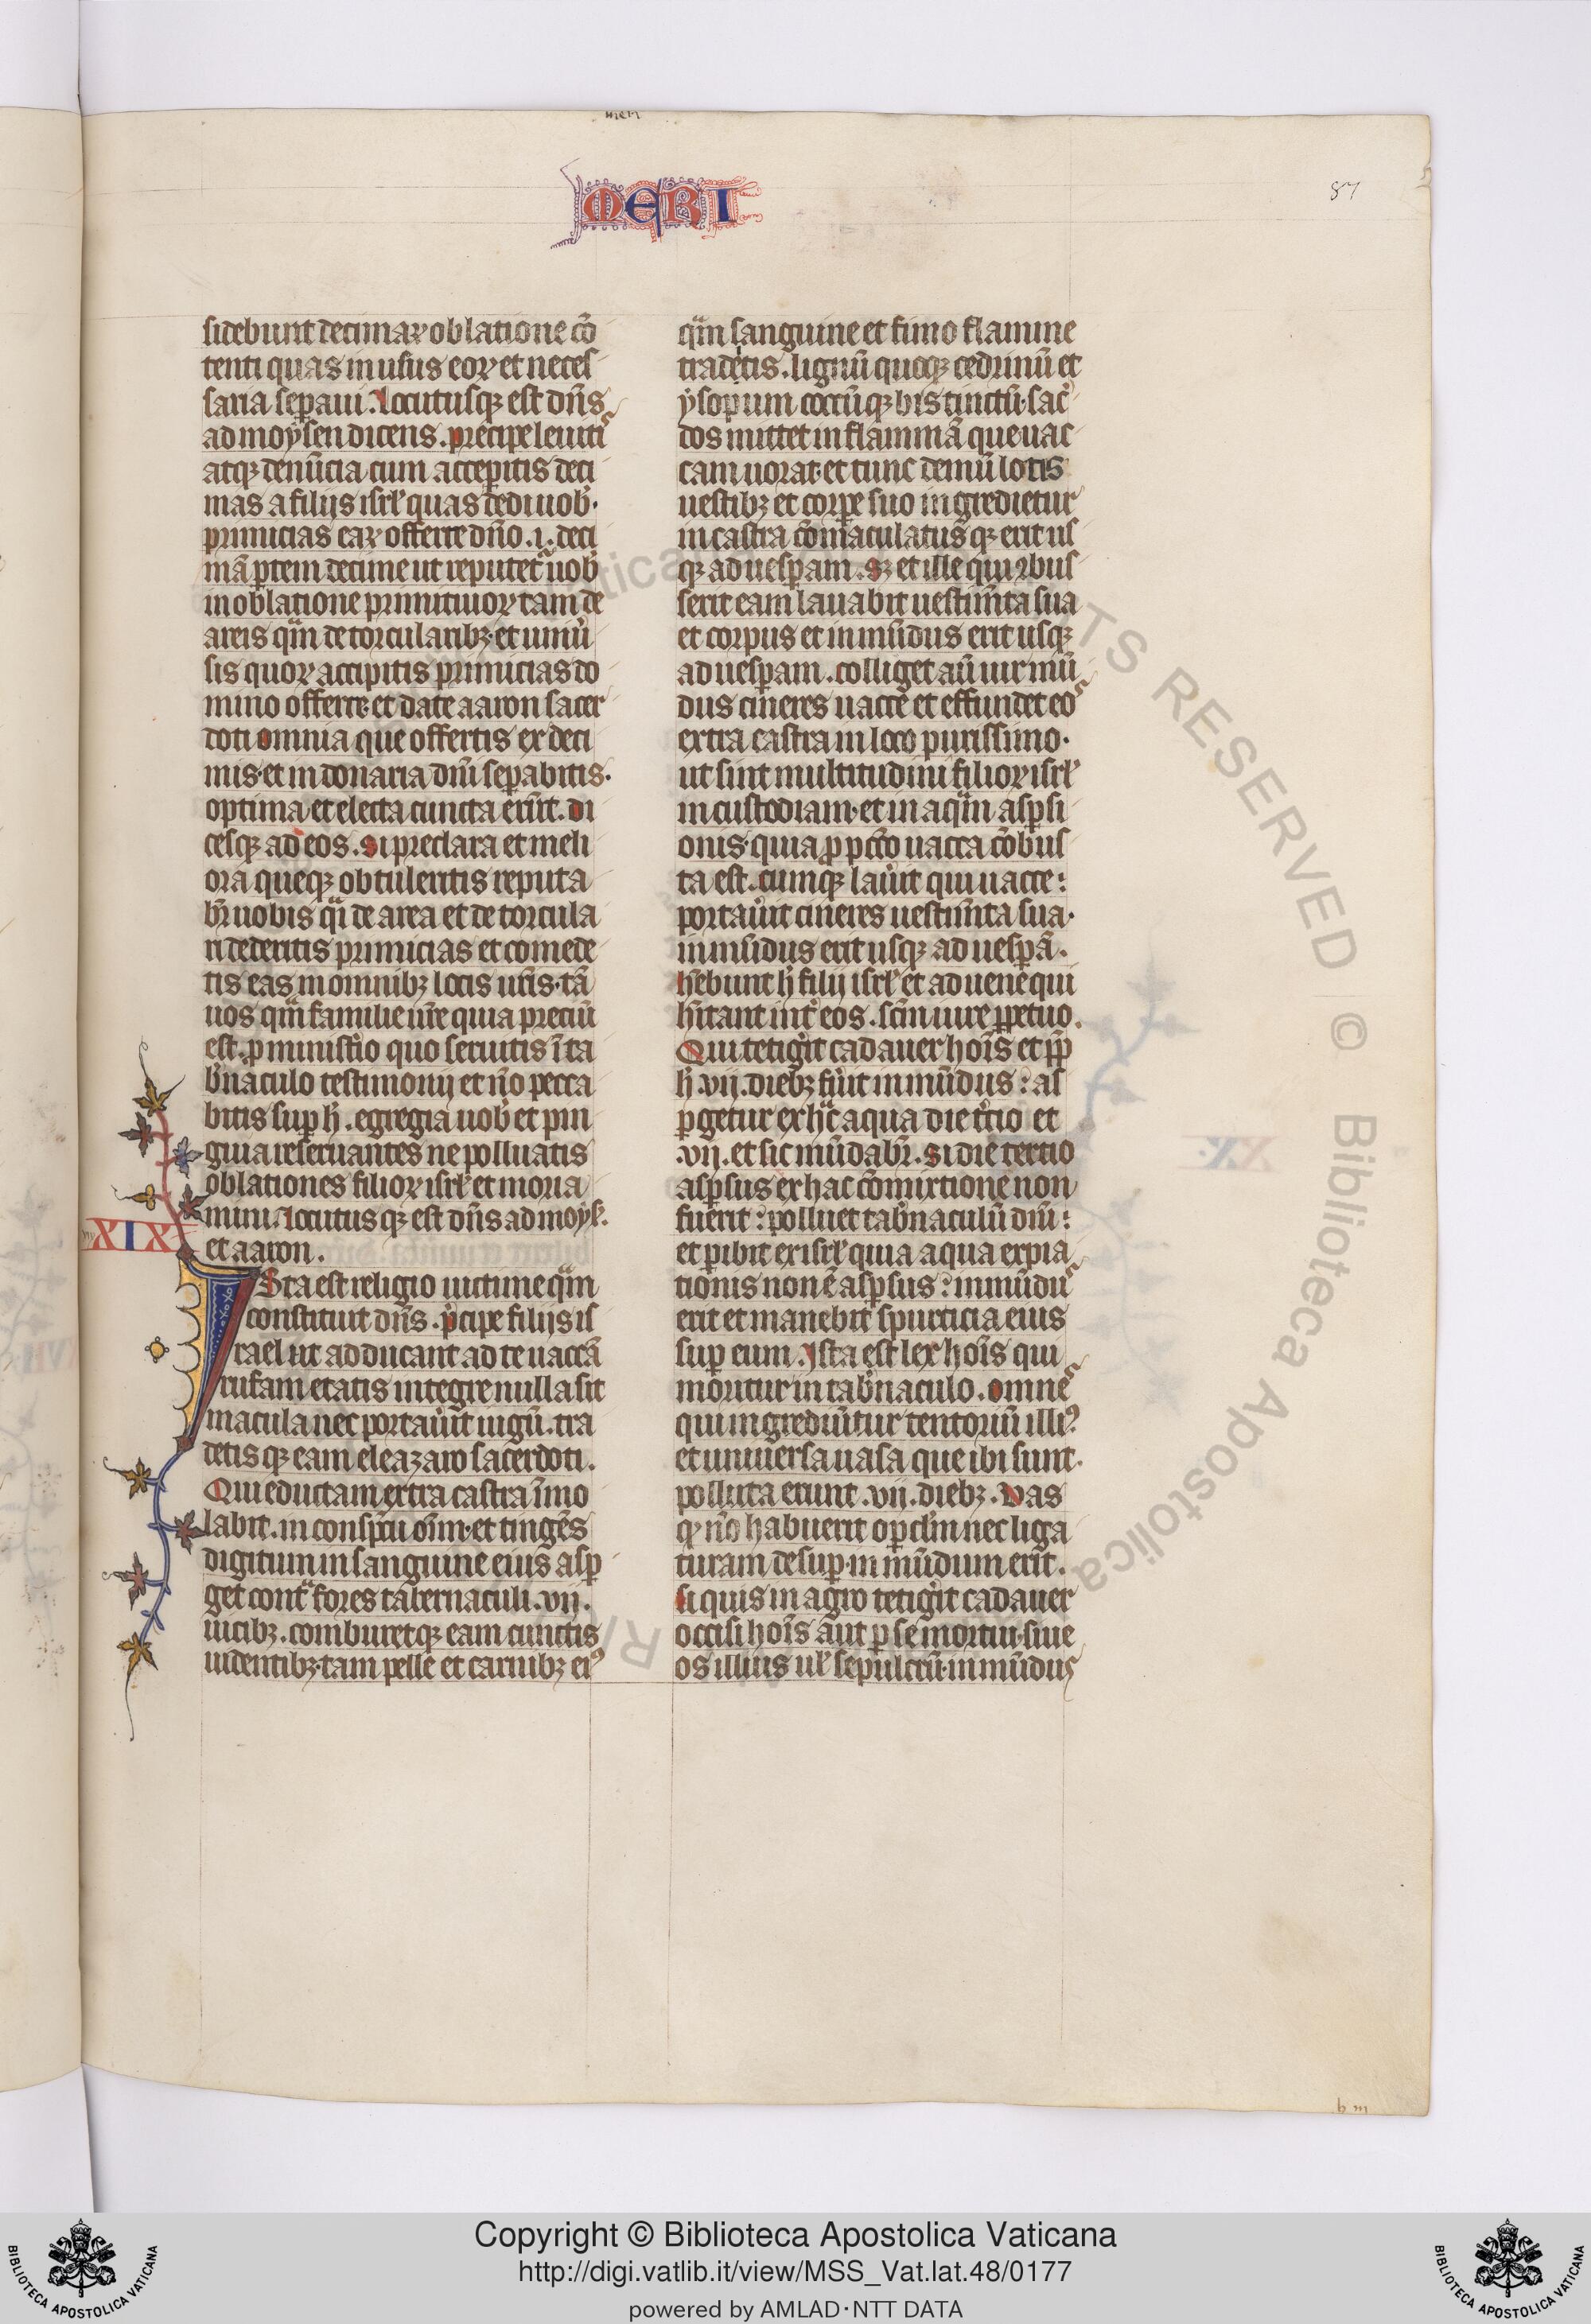 meri
MERI
87
sidebunt decimaꝝ oblatione cō
tenti quas in usus eoꝝ et neces
saria sep̲aui. Locutusqꝫ est dn̄s
ad moysen dicens. precipe leuitis
atqꝫ denūcia cum accep̲itis deci
mas a filijs isrl̓ quas dedi uob̓.
primicias eaꝝ offerte dn̄o .i. deci
mā p̲tem decime ut reputet᷑ uob̓
in oblatione primitiuoꝝ tam de
areis q̄m de torcularibꝫ et uniu̓
sis quoꝝ accipitis primicias do
mino offerte et date aaron sacer
doti omnia que offertis ex deci
mis et in donaria dn̄i sep̲abitis.
optima et electa cuncta erūt. di
cesqꝫ ad eos. si preclara et meli
ora queqꝫ obtuleritis reputa
bit᷑ uobis q̄i de area et de torcula
ri dederitis primicias et comede
tis eas in omnibꝫ locis ur̄is tā
uos q̄m familie ur̄e quia preciū
est. p̲ minist̓io quo seruitis ī ta
b̓naculo testimonij et nō pecca
bitis sup̲ h̓. egregia uob̓ et pin
guia reseruantes ne polluatis
oblationes filioꝝ isrl̓ et moria
mini. Locutusqꝫ est dn̄s ad moys̓.
XIX
et aaron.
Ista est religio uictime q̄m
constituit dn̄s. p̓cipe filijs is
rael ut adducant ad te uaccā
rufam etatis integre nulla sit
macula nec portau̓it iugū. tra
detisqꝫ eam eleazaro sacerdoti.
Qui eductam extra castra īmo
labit. in consp̄tu oīm et tingēs
digitum in sanguine eius asp̲
get cont̓ fores tabernaculi .vij.
uicibꝫ. comburetqꝫ eam cunctis
uidentibꝫ tam pelle et carnibꝫ ei᷒
q̄m sanguine et fimo flamme
tradetis. lignū quoqꝫ cedrinū et
ysopum coccūqꝫ bis tinctū sac̓
dos mittet in flammā que uac
cam uorat et tunc demū lotis
uestibꝫ et corp̲e suo ingredietur
in castra cōmaculatusqꝫ erit us
qꝫ ad uesp̲am. sꝫ et ille qui ꝯbus
serit eam lauabit uestim̄ta sua
et corpus et inmūdus erit usqꝫ
ad uesp̲am. colliget aū uir mū
dus cineres uacce et effundet eos
extra castra in loco purissimo.
ut sint multitudini filioꝝ isrl̓
in custodiam et in aq̄m asp̲si
onis quia ꝓ pcc̄o uacca cōbus
ta est. cumqꝫ lau̓it qui uacce:
portau̓it cineres uestim̄ta sua.
inmūdus erit usqꝫ ad uesp̲ā.
hēbunt h̓ filij isrl̓ et aduene qui
hītant int̓ eos. sc̄m iure p̲petuo.
Qui tetig̓it cadauer hoīs et ꝓp̲
h̓ .vij. diebꝫ fu̓it inmūdus: as
p̲getur ex hc̄ aqua die t̓cio et
.vij. et sic mūdabit᷑. si die tertio
asp̲sus ex hac cōmixtione non
fuerit: polluet tab̓naculū dn̄i:
et p̲ibit ex isrl̓ quia aqua expia
tionis non ē asp̲sus: inmūdus
erit et manebit spurticia eius
sup̲ eum. Ista est lex hoīs qui
moritur in tab̓naculo. omnes
qui ingrediūtur tentoriū illi᷒
et uniuersa uasa que ibi sunt.
polluta erunt .vij. diebꝫ. vas
qꝫ nō habuerit op̲cl̄m nec liga
turam desup̲ inmūdum erit.
si quis in agro tetig̓it cadauer
occisi hoīs aut p̲ se mortui siue
os illius ul̓ sepulcrū inmūdus
Copyright © Biblioteca Apostolica Vaticana
http://digi.vatlib.it/view/MSS_Vat.lat.48/0177
powered by AMLAD·NTT DATA
BIBLIOTECA APOSTOLICA VATICANA
BIBLIOTECA APOSTOLICA VATICANA